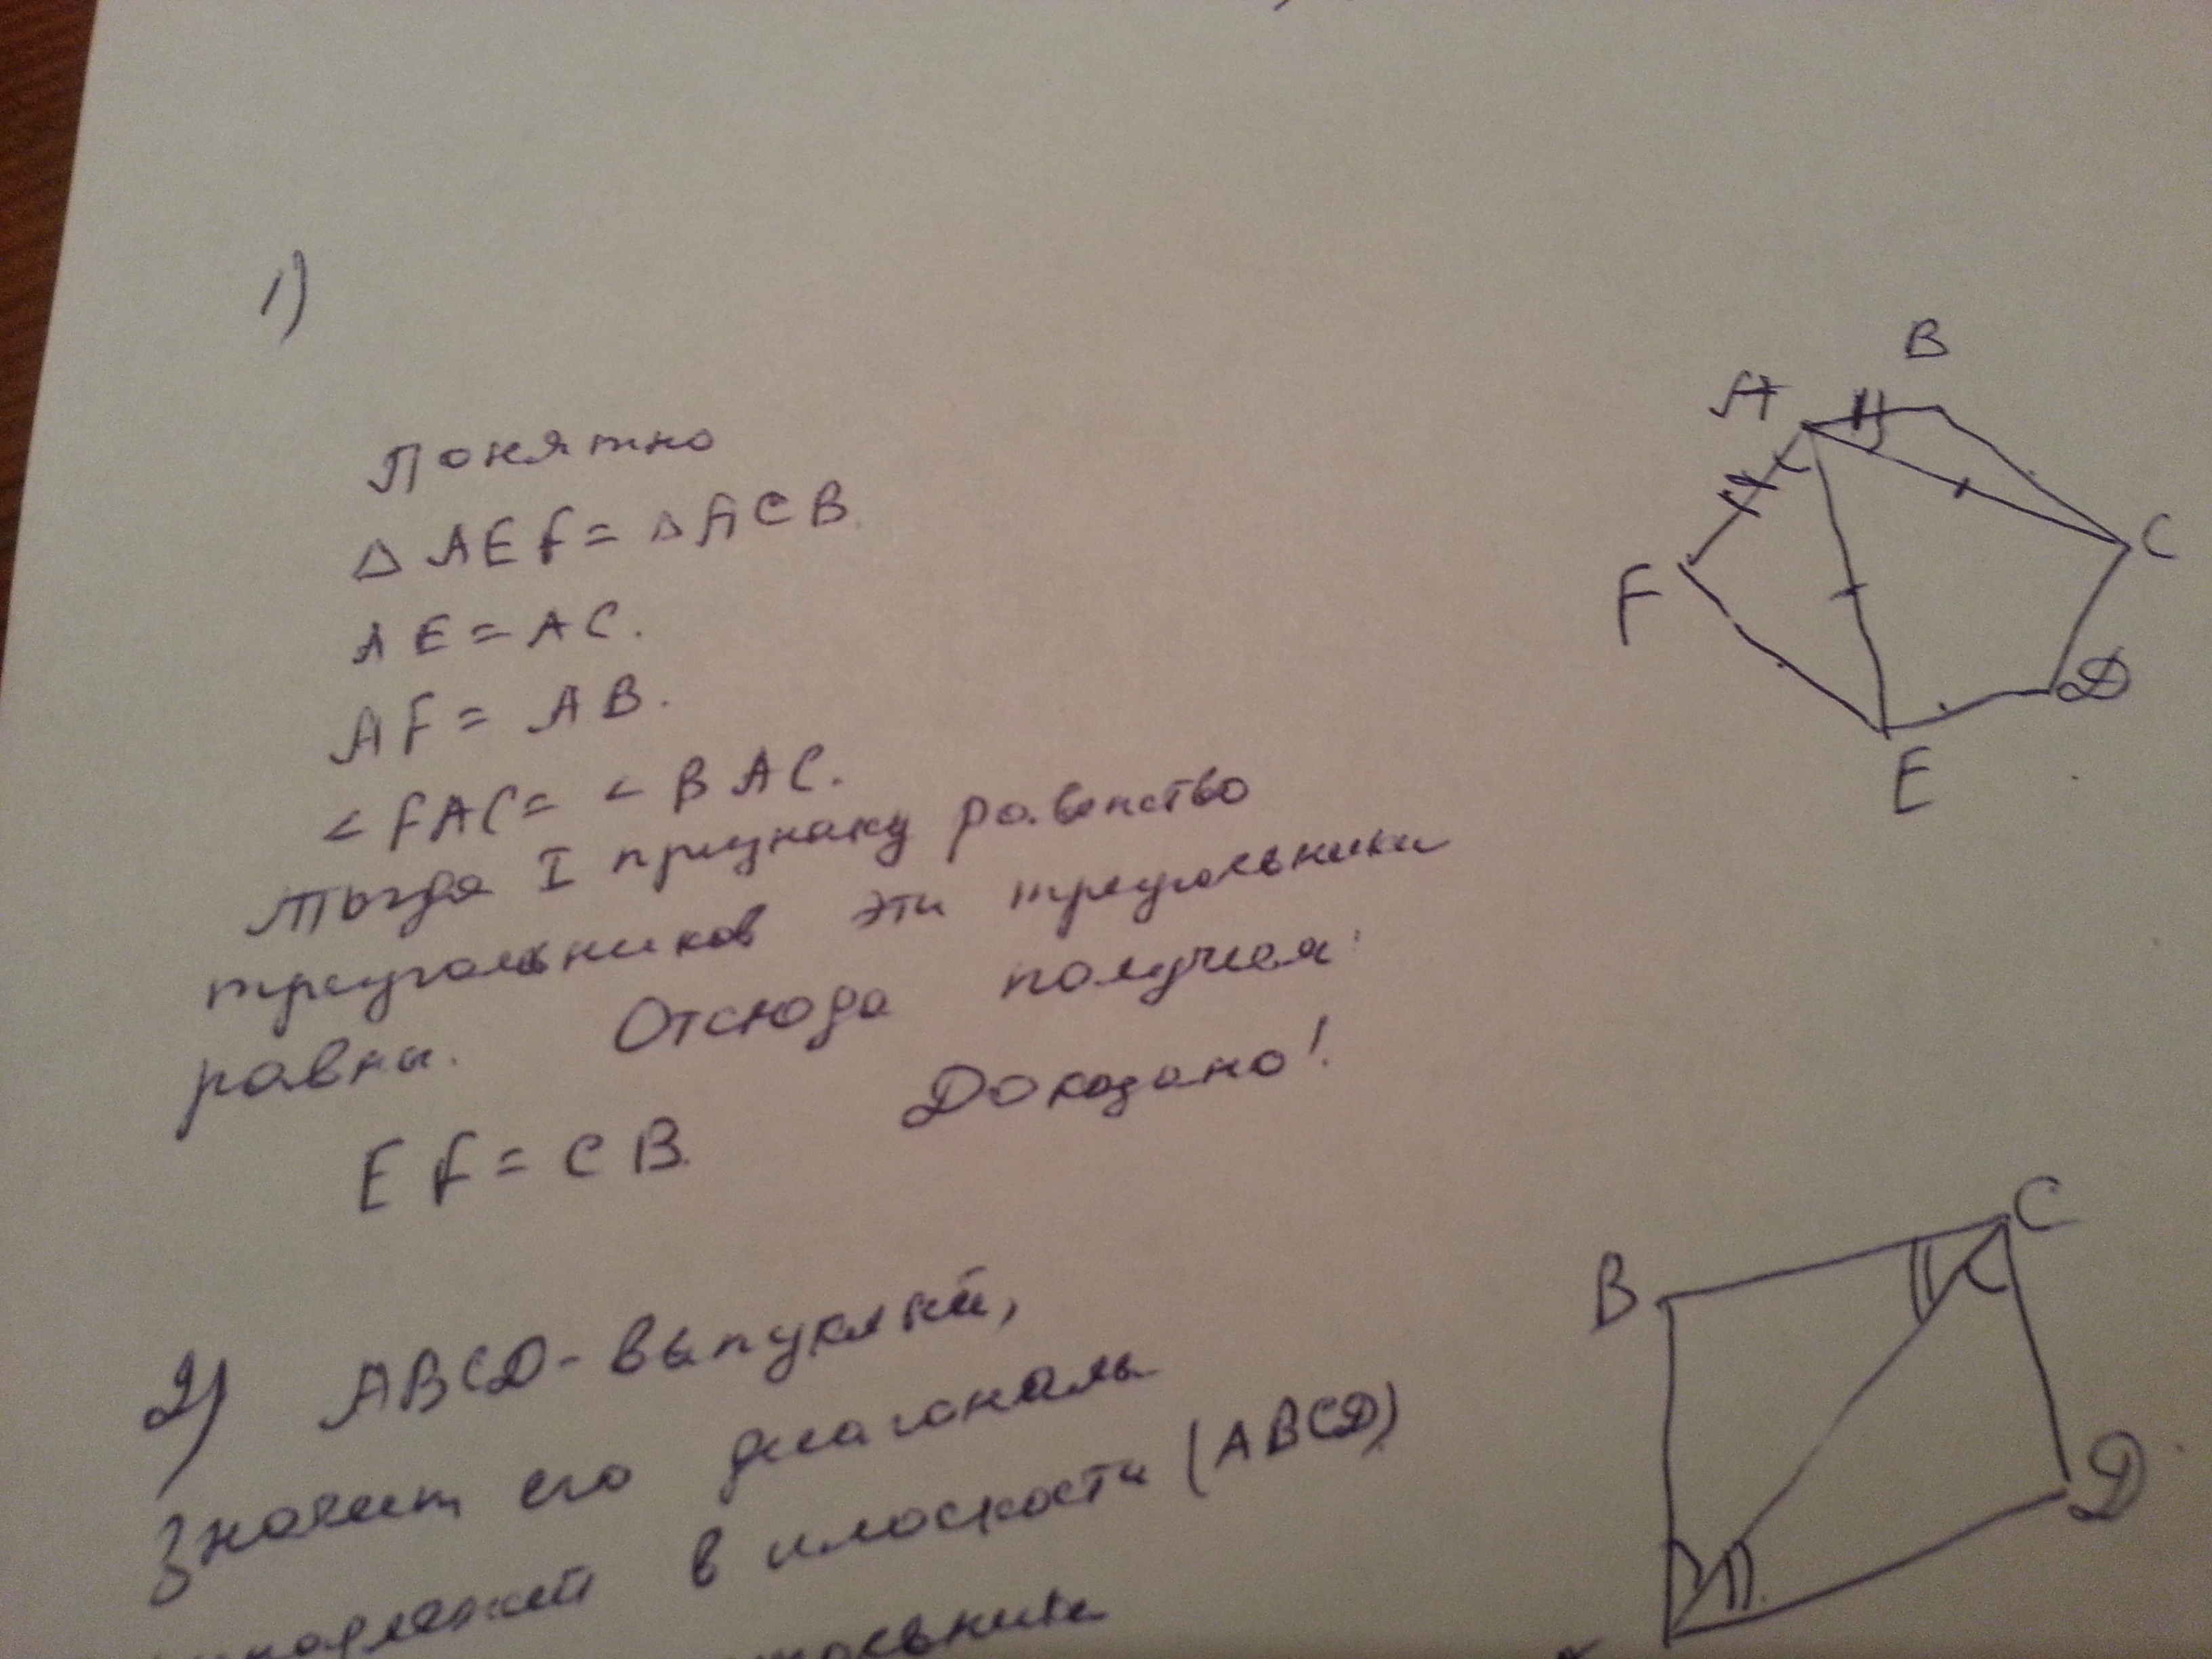 1)
Понятно
△ AEF = △ ACB.
AE = AC.
AF = AB.
< FAC = < BAC.
Тогда I признаку равенство
треугольников эти треугольники
равны. Отсюда получая:
EF = CB. Доказано!
2) ABCD - выпуклый,
Значит его диагональ
в плоскости (ABCD)
A
B
C
D
E
F
B
C
D